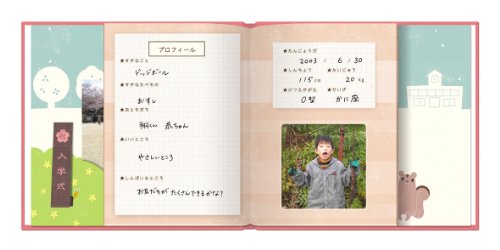 入学式
プロフィール
★すきなこと
ドッジボール
★すきなたべもの
おすし
★おともだち
翔くん 泰ちゃん
★いいところ
やさしいところ
★しんぱいなところ
お友だちが たくさんできるかな?
★たんじょうび
2003 / 6 / 30
★しんちょう ★たいじゅう
115cm 20kg
★けつえきがた ★せいざ
O型 かに座